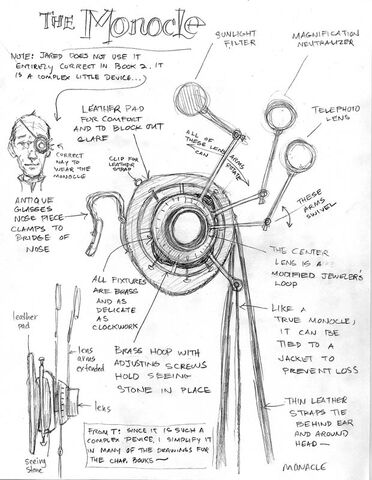 THE MONOCLE
NOTE: JARED DOES NOT USE IT
ENTIRELY CORRECT IN BOOK 2. IT
IS A COMPLEX LITTLE DEVICE...
SUNLIGHT
FILTER
MAGNIFICATION
NEUTRALIZER
TELEPHOTO
LENS
LEATHER PAD
FOR COMFORT
AND TO BLOCK OUT
GLARE
ALL OF
THESE LENS ARMS
CAN ROTATE
CORRECT
WAY TO
WEAR THE
MONOCLE
CLIP FOR
LEATHER
STRAP
ANTIQUE
GLASSES
NOSE PIECE
CLAMPS TO
BRIDGE OF
NOSE
THESE
ARMS
SWIVEL
THE CENTER
LENS IS A
MODIFIED JEWELER'S
LOOP
ALL FIXTURES
ARE BRASS
AND AS
DELICATE
AS
CLOCKWORK
LIKE A
TRUE MONOCLE,
IT CAN BE
TIED TO A
JACKET TO
PREVENT LOSS
leather
pad
lens
arms
extended
lens
seeing
stone
BRASS HOOP WITH
ADJUSTING SCREWS
HOLD SEEING
STONE IN PLACE
THIN LEATHER
STRAPS TIE
BEHIND EAR
AND AROUND
HEAD—
FROM T: SINCE IT IS SUCH A
COMPLEX DEVICE, I SIMPLIFY IT
IN MANY OF THE DRAWINGS FOR
THE CHAP. BOOKS—
MONACLE